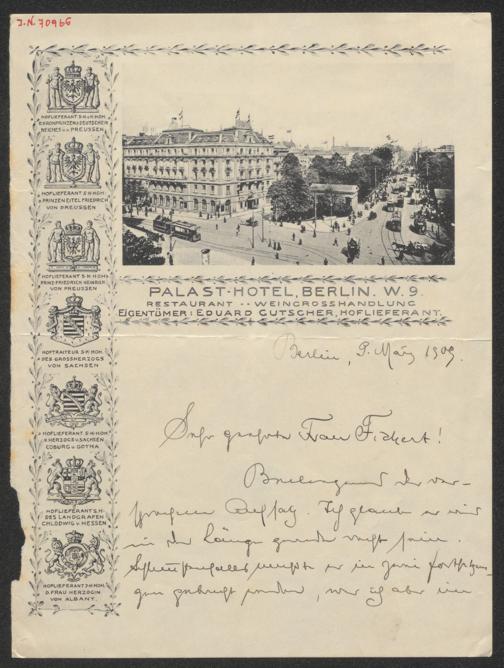 I.N. 70966
HOFLIEFERANT S·K·U·K·HOH.
D.KRONPRINZEN D.DEUTSCHEN
REICHES U.V. PREUSSEN
HOFLIEFERANT S·K·HOH.
D.PRINZEN EITEL FRIEDRICH
VON PREUSSEN
HOFLIEFERANT S·K·HOH.
PRINZ·FRIEDRICH HEINRICH
VON PREUSSEN
HOFTRAITEUR S·K·HOH.
DES GROSSHERZOGS
VON SACHSEN
HOFLIEFERANT S·K·HOH.
D.HERZOGS V.SACHSEN
COBURG U. GOTHA
HOFLIEFERANT S.H.
DES LANDGRAFEN
CHLODWIG V. HESSEN
HOFLIEFERANT I·K·HOH.
D.FRAU HERZOGIN
VON ALBANY.
PALAST·HOTEL, BERLIN. W.9.
RESTAURANT ·· WEINGROSSHANDLUNG
EIGENTÜMER: EDUARD GUTSCHER, HOFLIEFERANT.
Berlin, 9. März 1909.
Sehr geehrte Frau Fickert!
Beiliegend der ver-
sprochene Aufsatz. Ich glaube er wird
in der Länge gerade recht sein.
müsste er in zwei Fortsetzun-
gen gebracht werden, was ich aber